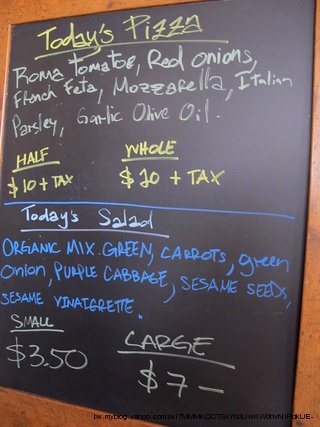 Today's Pizza
Roma Tomatoe, Red onions,
French Feta, Mozzarella, Italian
Parsley, Garlic Olive Oil.
HALF WHOLE
$10 + TAX $20 + TAX
Today's Salad
ORGANIC MIX GREEN, CARROTS, green
Onion, PURPLE CABBAGE, SESAME SEEDS,
SESAME VINAIGRETTE.
SMALL LARGE
$3.50 $7-